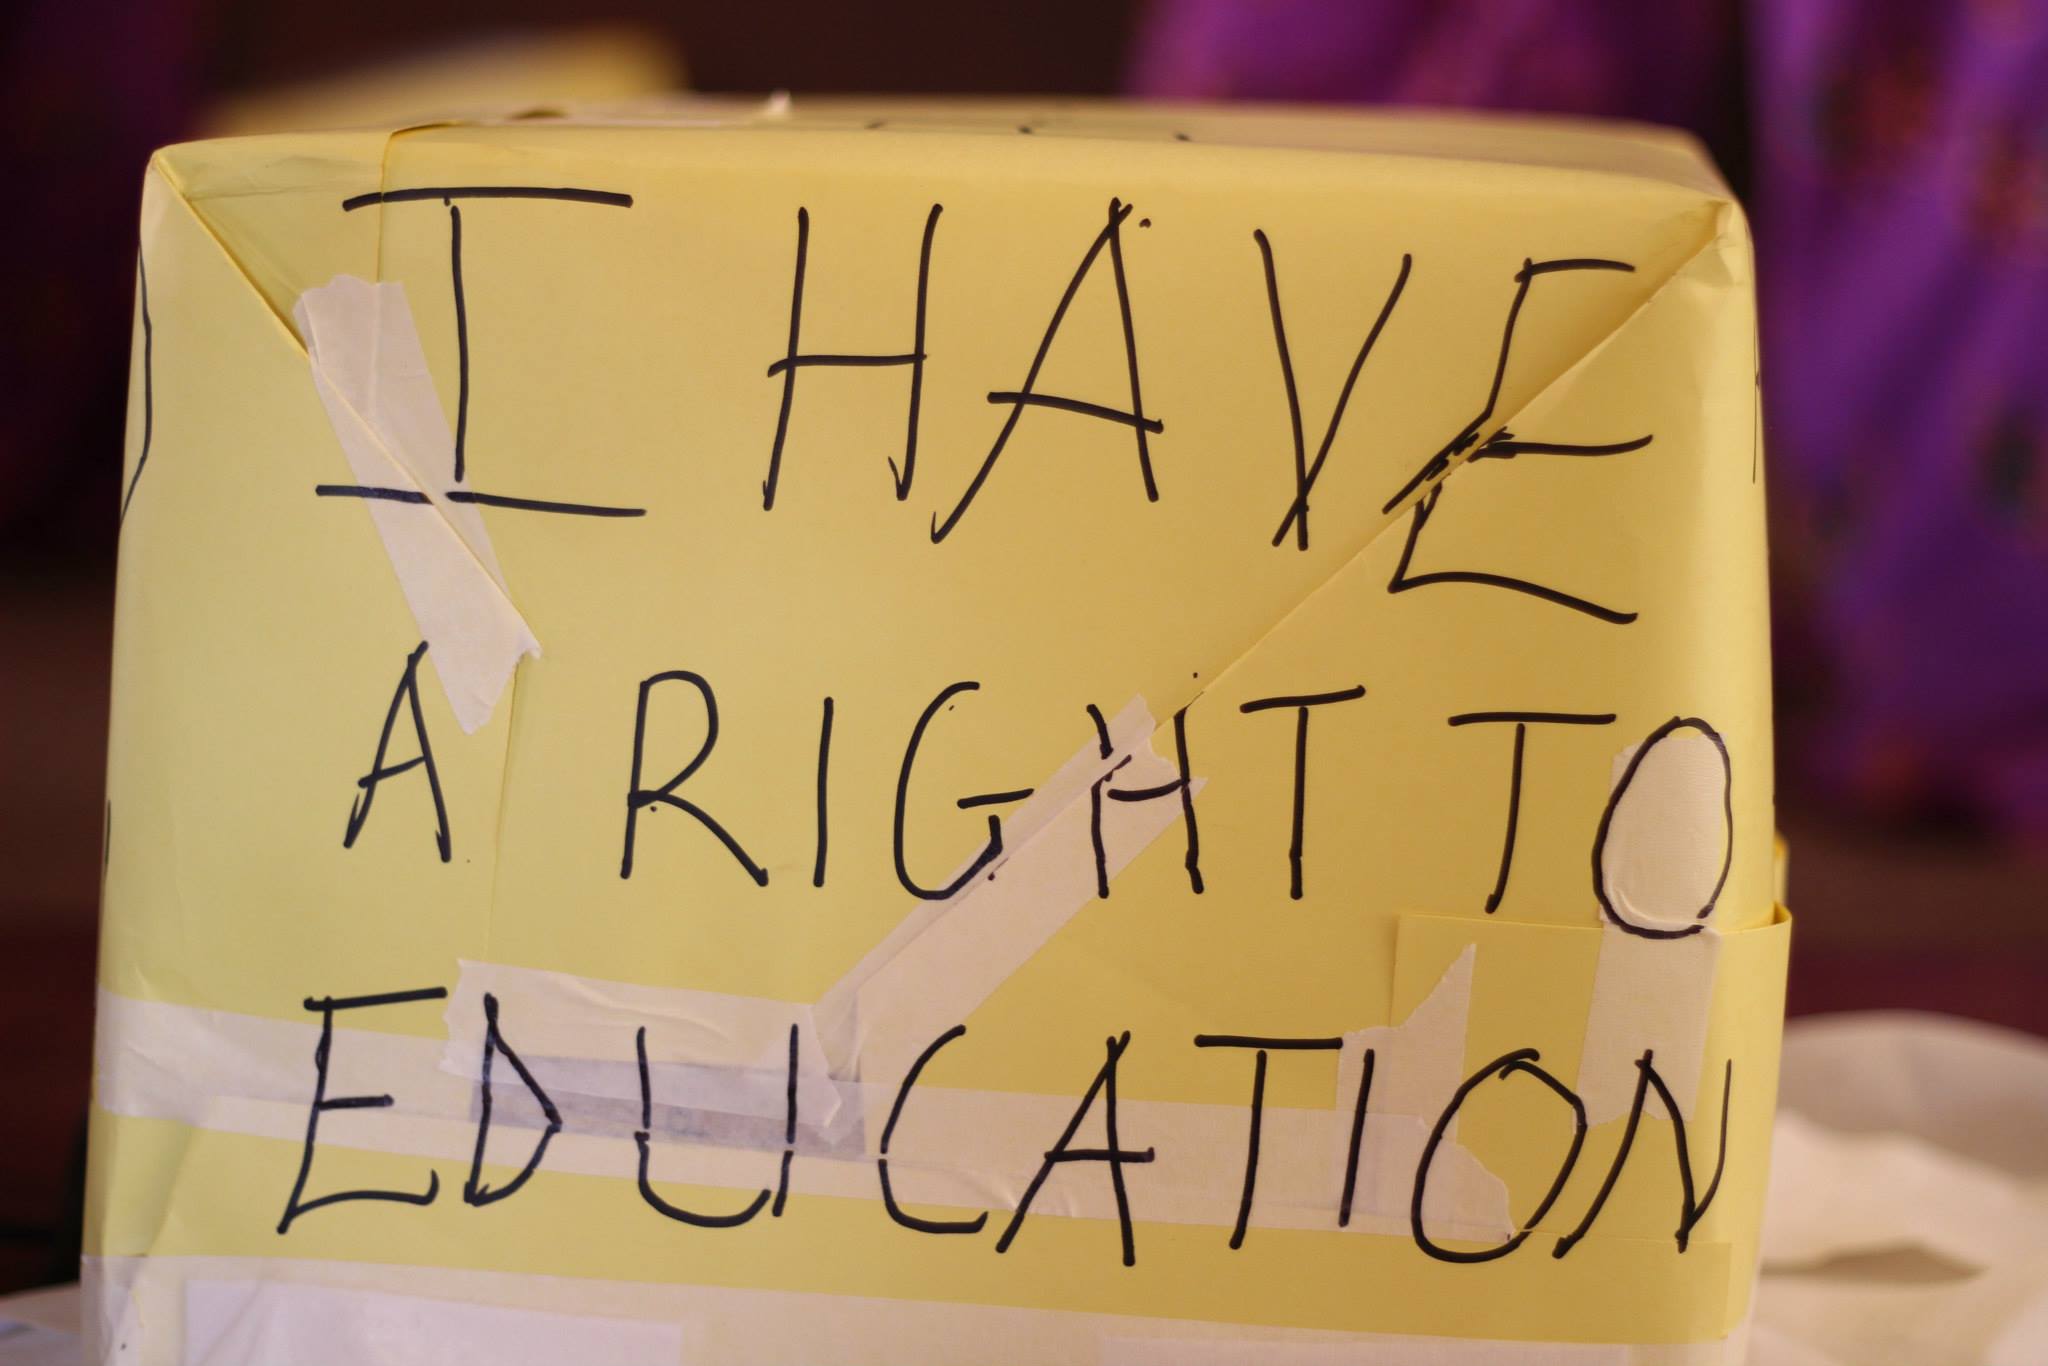 I HAVE
A RIGHT TO
EDUCATION